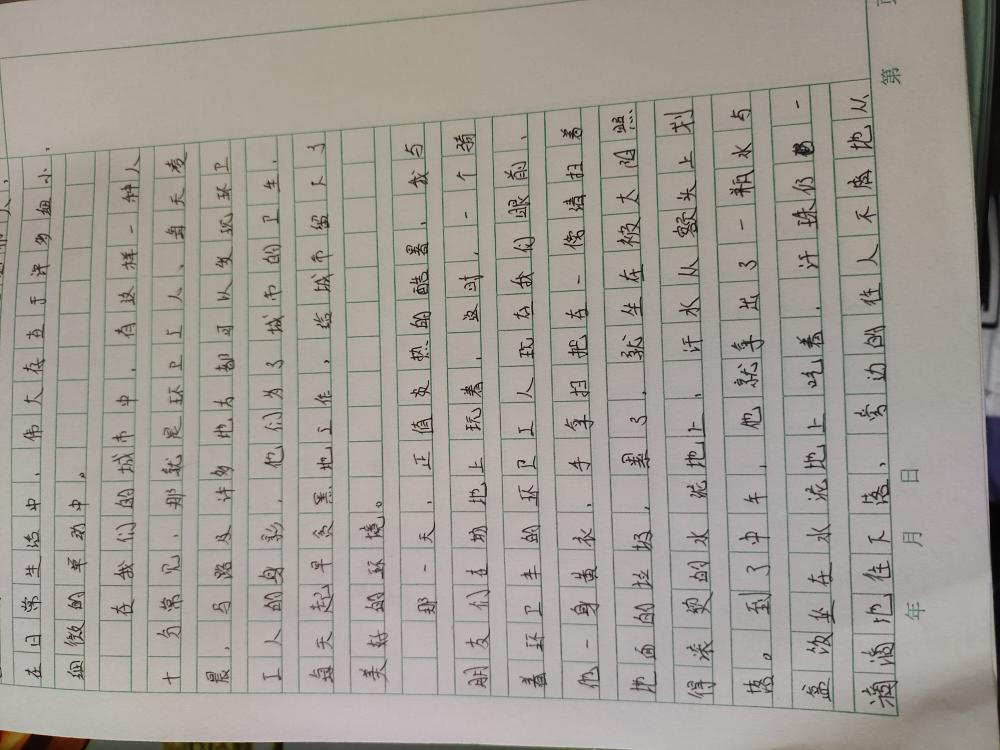 在日常生活中，伟大存在于许多细小、
细微的举动中。
在我们的城市中，有这样一种人
十分常见，那就是环卫工人、每天凌
晨，马路及许多地方都可以发现环卫
工人的身影，他们为了城市的卫生，
每天起早贪黑地工作，给城市留下了
美好的环境。
那一天，正值炎热的酷暑，我与
朋友们在场地上玩着，这时，一个骑
着环卫车的环卫工人现在我们眼前、
他一身黄衣，手拿扫把在一旁清扫着
地面的垃圾，累了，就坐在被太阳照
得滚烫的水泥地上，汗水从额头上划
落。到了中午，他就拿出了一瓶水与
盒饭坐在水泥地上吃着，汗珠仍一
滴滴地往下落，旁边的住人不断地从
年 月 日
第 页